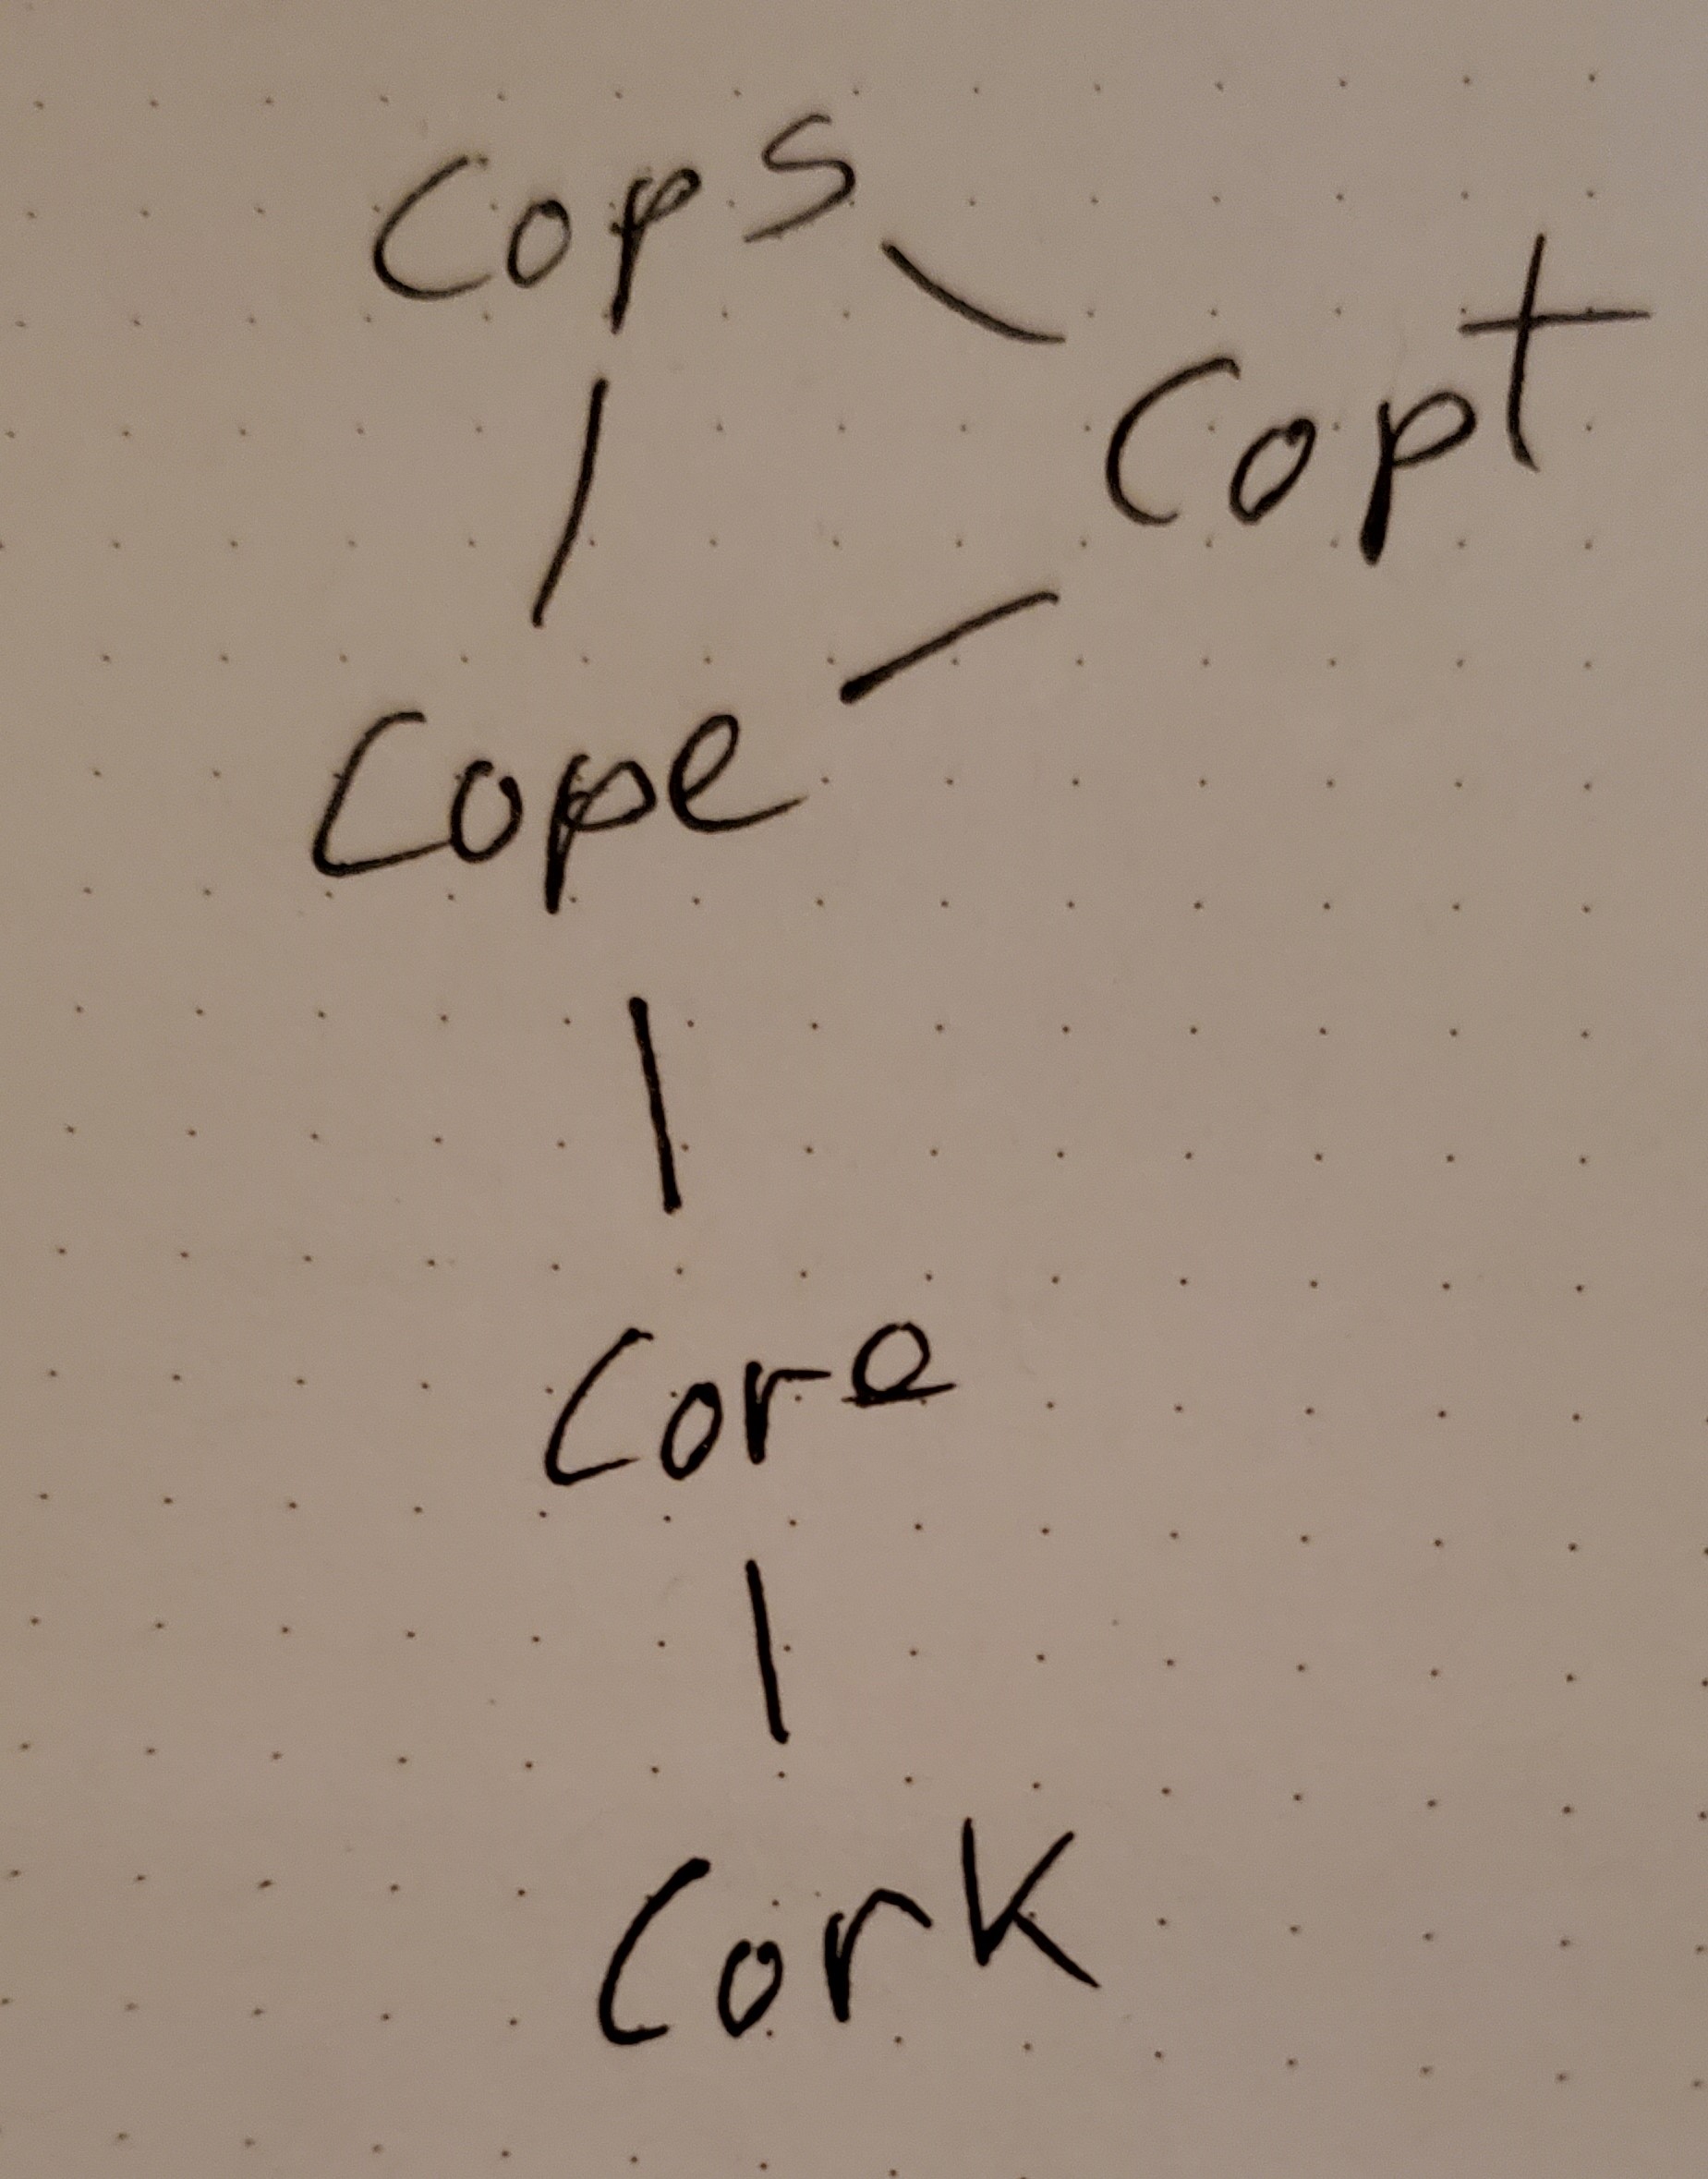 Cops
Copt
Cope
Core
Cork